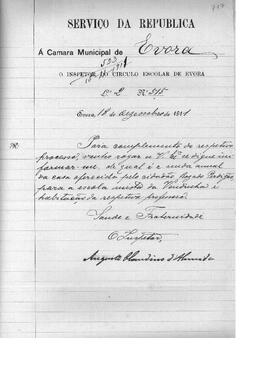 SERVIÇO DA REPUBLICA
Á Camara Municipal de Evora
O INSPETOR DO CIRCULO ESCOLAR DE EVORA
Lº 2 Nº 515
Evora, 18 de dezembro de 1911
Para complemento do respetivo
processo, venho rogar a V. Exª se digne in-
formar-me, de qual é a renda annual
da casa oferecida pelo cidadão
para a escola mixta da e
habitação da respetiva professora.
Saude e Fraternidade
O Inspetor,
Augusto Claudino d'Almeida